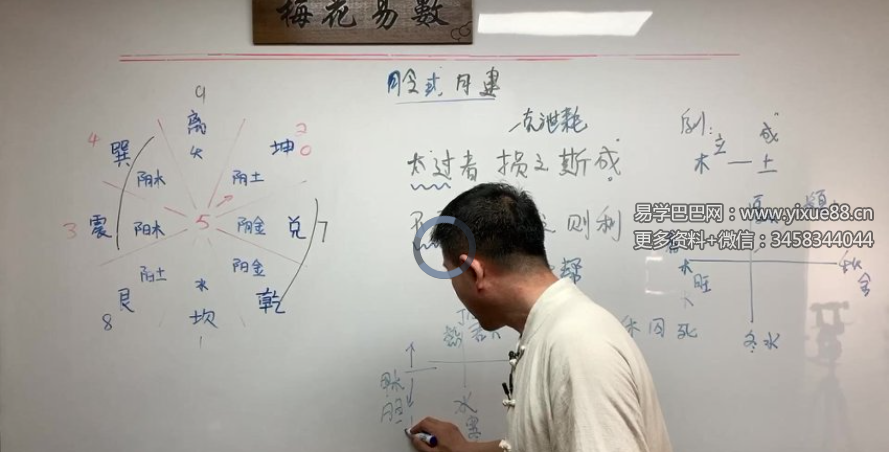 梅花易數
月令或月建
克泄耗
太过者损之斯成
则利
帮
例:
立 成
木—土
旺
秋
金
冬水
休囚死
9
离
火
4
巽
阴木
2
坤
阴土
3
震
阳木
5
阴金
兑
7
8
艮
阳土
水
坎
1
阳金
乾
水
寒
易学巴巴网:www.yixue88.cn
更多资料+微信:3458344044